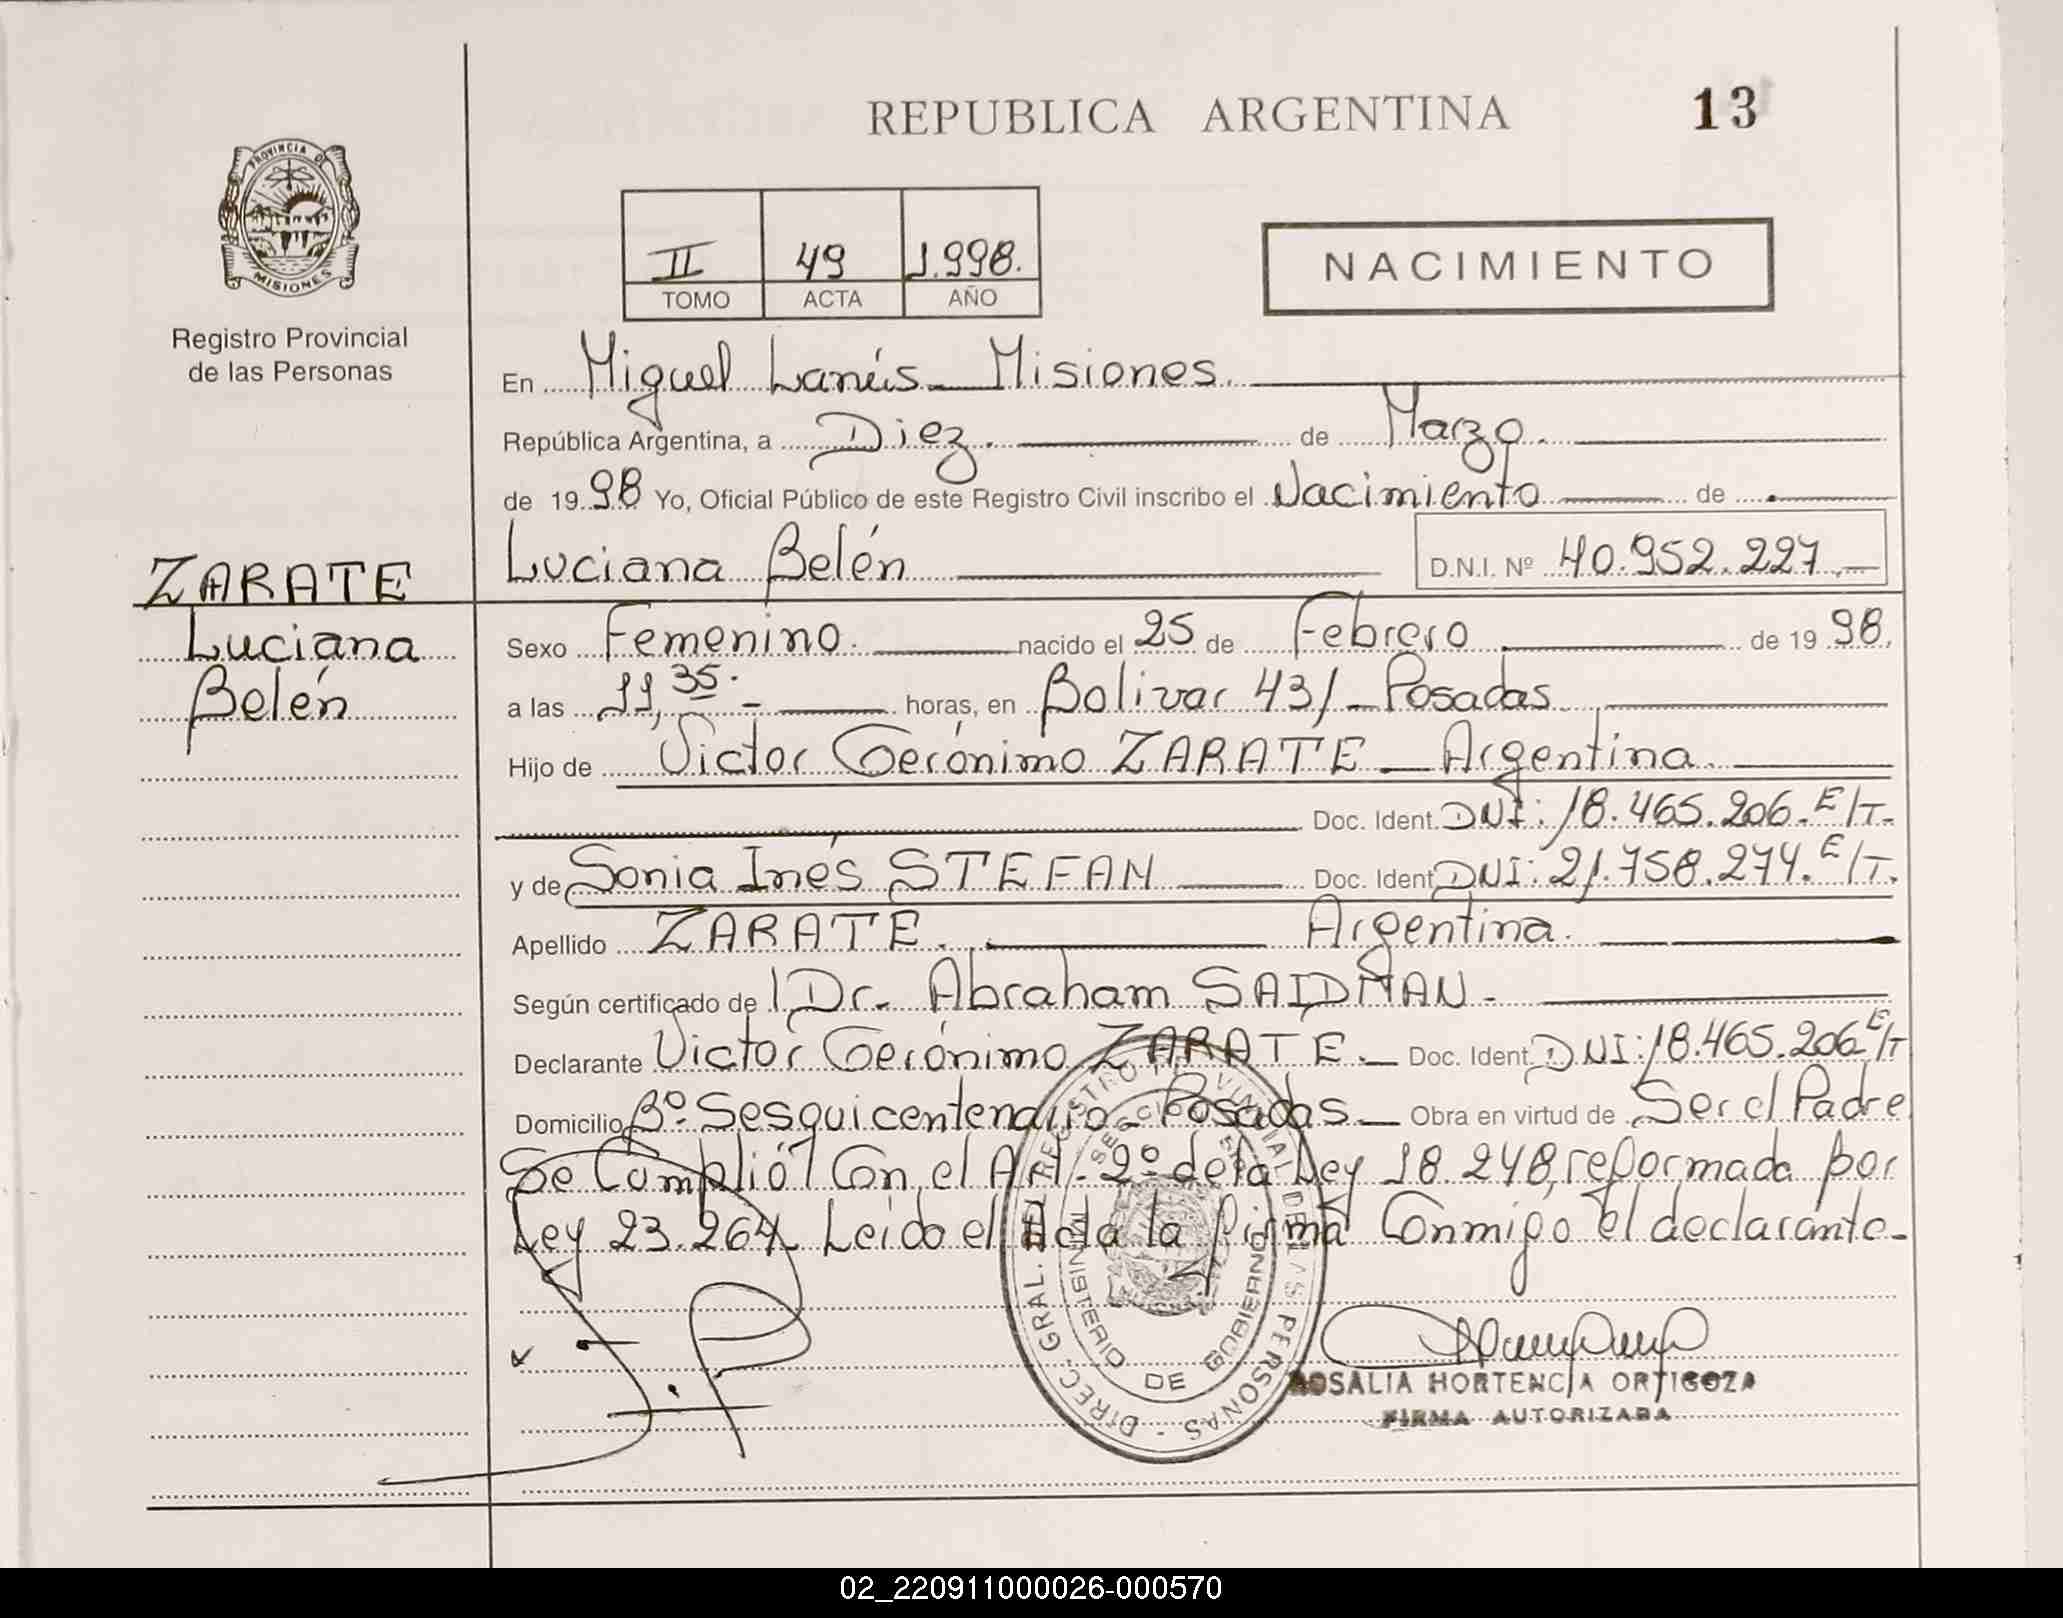 REPUBLICA ARGENTINA
13
PROVINCIA DE
MISIONES
Registro Provincial
de las Personas
II 49 1.998.
TOMO ACTA AÑO
NACIMIENTO
En Miguel Lanús - Misiones.
República Argentina, a Diez. de Marzo.
de 1998 Yo, Oficial Público de este Registro Civil inscribo el Nacimiento de
Luciana Belén D.N.I. Nº 40.952.227.-
ZARATE
Luciana
Belén
Sexo Femenino. nacido el 25 de Febrero de 19 98.
a las 11,35.- horas, en Bolivar 431 - Posadas.
Hijo de Victor Gerónimo ZARATE - Argentina.
Doc. Ident. DNI: 18.465.206. E/T.
y de Sonia Inés STEFAN Doc. Ident. DNI: 21.758.274. E/T.
Apellido ZARATE. Argentina.
Según certificado de Dr. Abraham SAIDMAN -
Declarante Victor Gerónimo ZARATE. - Doc. Ident. DNI: 18.465.206 E/T
Domicilio Bº Sesquicentenario - Posadas - Obra en virtud de Ser el Padre
Se Cumplió Con el Art. 2º de la Ley 18.248, reformada por
Ley 23.264 Leido el Acta la firma Conmigo el declarante.
DIREC. GRAL. DEL REGISTRO PROVINCIAL DE LAS PERSONAS
MINISTERIO DE GOBIERNO
ROSALIA HORTENCIA ORTIGOZA
FIRMA AUTORIZADA
02_220911000026-000570